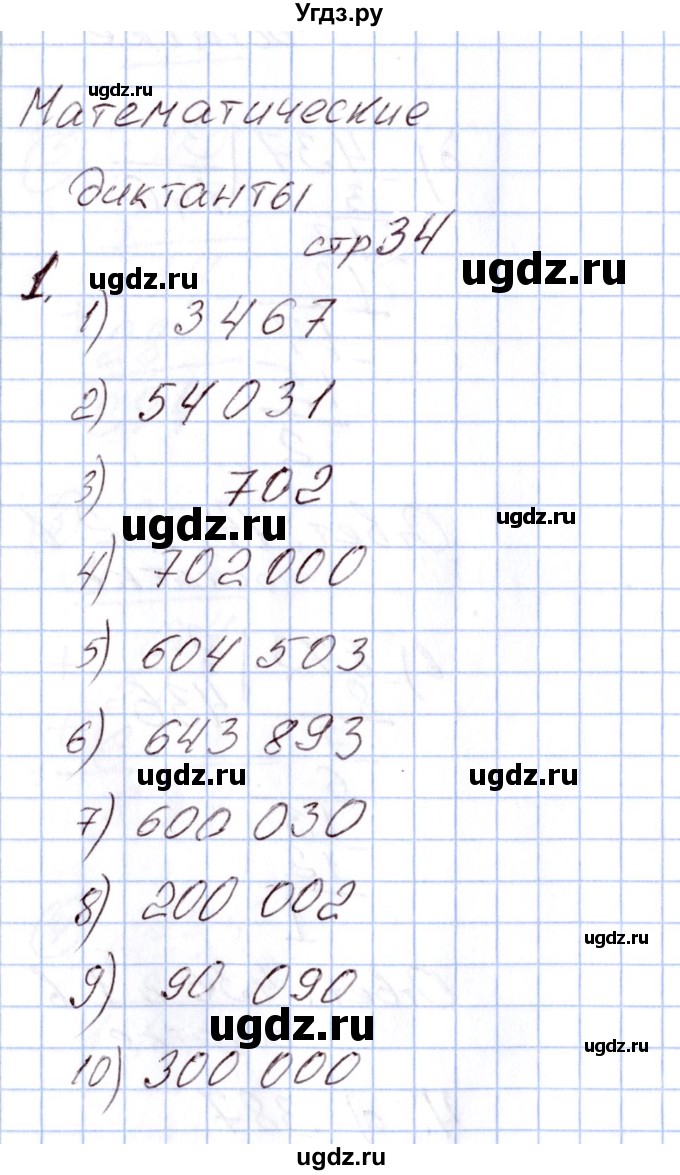 Угдз.ру
ugdz.ru
Математические
диктанты
стр 34
ugdz.ru
ugdz.ru
1.
1) 3467
2) 54 031
3) 702
ugdz.ru
ugdz.ru
4) 702 000
5) 604 503
6) 643 893
ugdz.ru
ugdz.ru
7) 600 030
8) 200 002
ugdz.ru
9) 90 090
ugdz.ru
ugdz.ru
10) 300 000
ugdz.ru